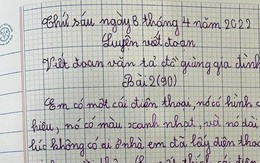 Thứ sáu ngày 8 tháng 4 năm 2022
Luyện viết đoạn
Viết đoạn văn tả đồ dùng gia đình
Bài 2 (90)
Em có một cái điện thoại, nó có hình c
hiệu, nó có màu xanh nhạt, và nó dài
lúc không có ai ở nhà, em đã lấy điện thoạ